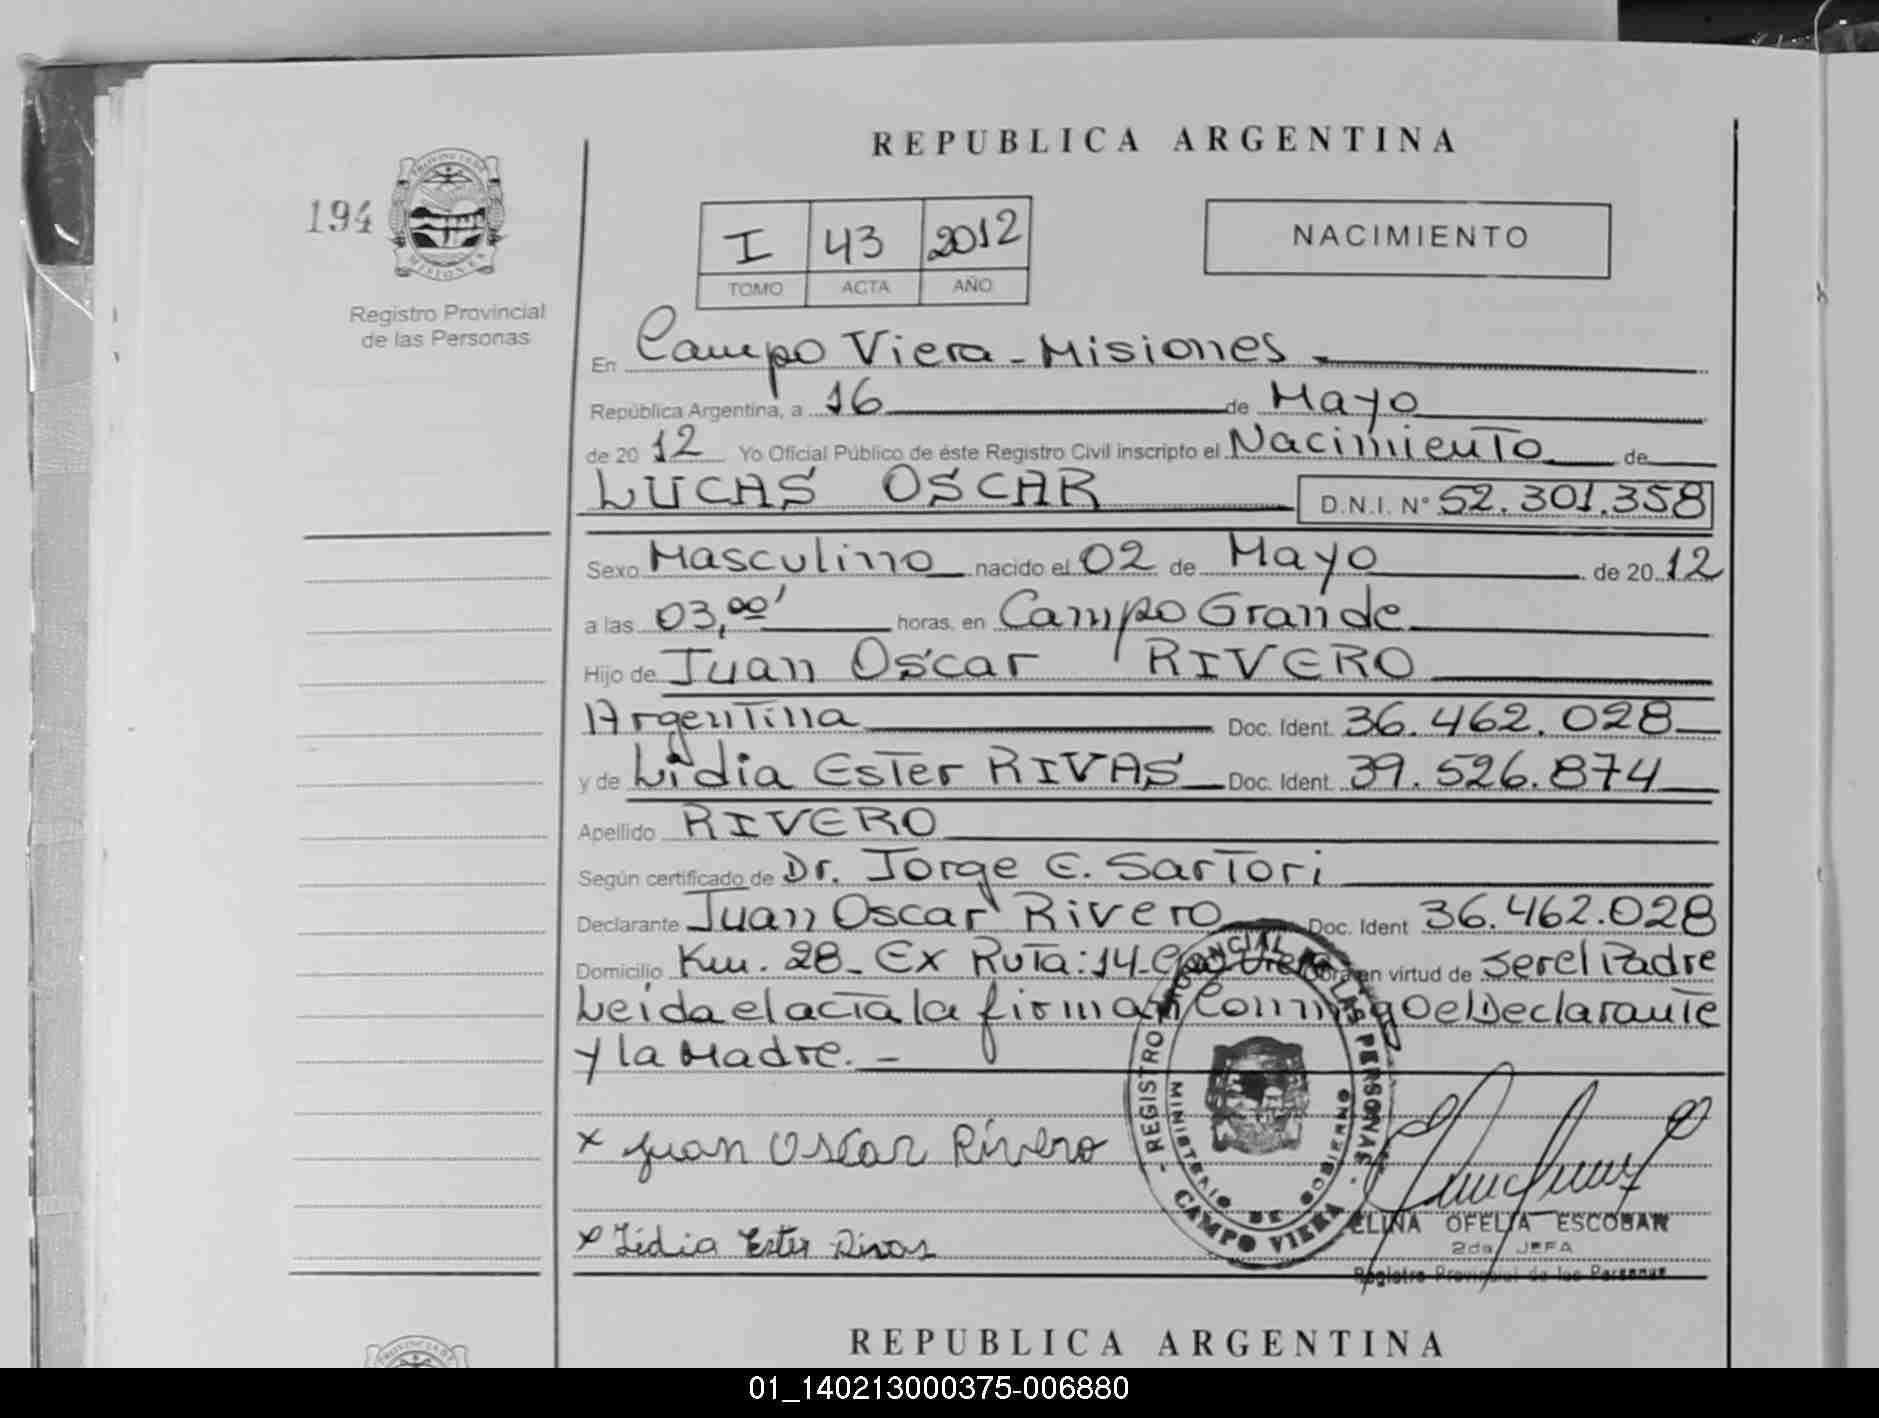 REPUBLICA ARGENTINA
194
PROVINCIA DE
MISIONES
Registro Provincial
de las Personas
I 43 2012
TOMO ACTA AÑO
NACIMIENTO
En Campo Viera - Misiones
República Argentina, a 16 de Mayo
de 20 12 Yo Oficial Público de éste Registro Civil inscripto el Nacimiento de
LUCAS OSCAR D.N.I. N° 52.301.358
Sexo Masculino nacido el 02 de Mayo de 20 12
a las 03,00' horas, en Campo Grande
Hijo de Juan Oscar RIVERO
Argentina Doc. Ident. 36.462.028
y de Lidia Ester RIVAS Doc. Ident. 39.526.874
Apellido RIVERO
Según certificado de Dr. Jorge E. Sartori
Declarante Juan Oscar Rivero Doc. Ident 36.462.028
Domicilio Km. 28 - Ex Ruta: 14 - Obra en virtud de ser el Padre
Leida el acta la firman Conmigo el Declarante
y la Madre. -
REGISTRO PROVINCIAL DE LAS PERSONAS - CAMPO VIERA
MINISTERIO DE GOBIERNO
x Juan Oscar Rivero
x Lidia Ester Rivas
ELINA OFELIA ESCOBAR
2da JEFA
Registro Provincial de las Personas
REPUBLICA ARGENTINA
PROVINCIA DE
01_140213000375-006880